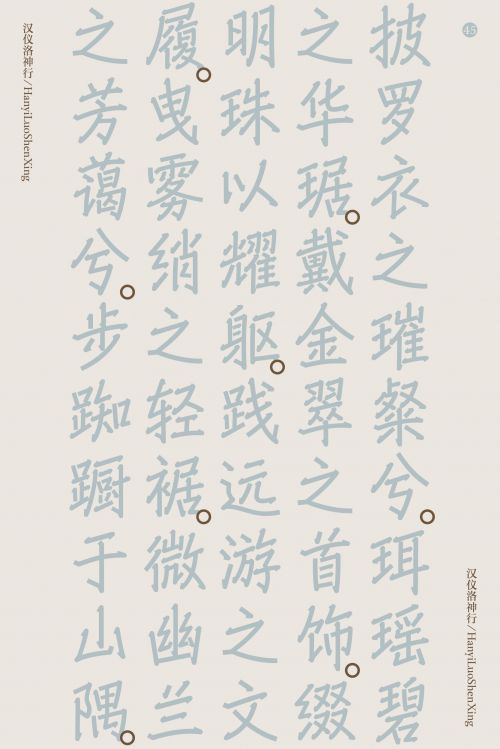 45
汉仪洛神行/HanyiLuoShenXing
披罗衣之璀粲兮。珥瑶碧
之华琚。戴金翠之首饰。缀
明珠以耀躯。践远游之文
履。曳雾绡之轻裾。微幽兰
之芳蔼兮。步踟蹰于山隅。
汉仪洛神行/HanyiLuoShenXing